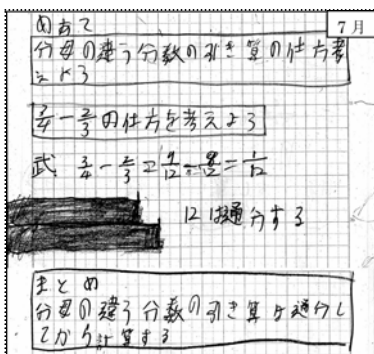 7月
めあて
分母の違う分数の引き算の仕方考
えよう
3/4-2/3の仕方を考えよう
式 3/4-2/3=9/12-8/12=1/12
12は通分する
まとめ
分母の違う分数の引き算は通分し
てから計算する